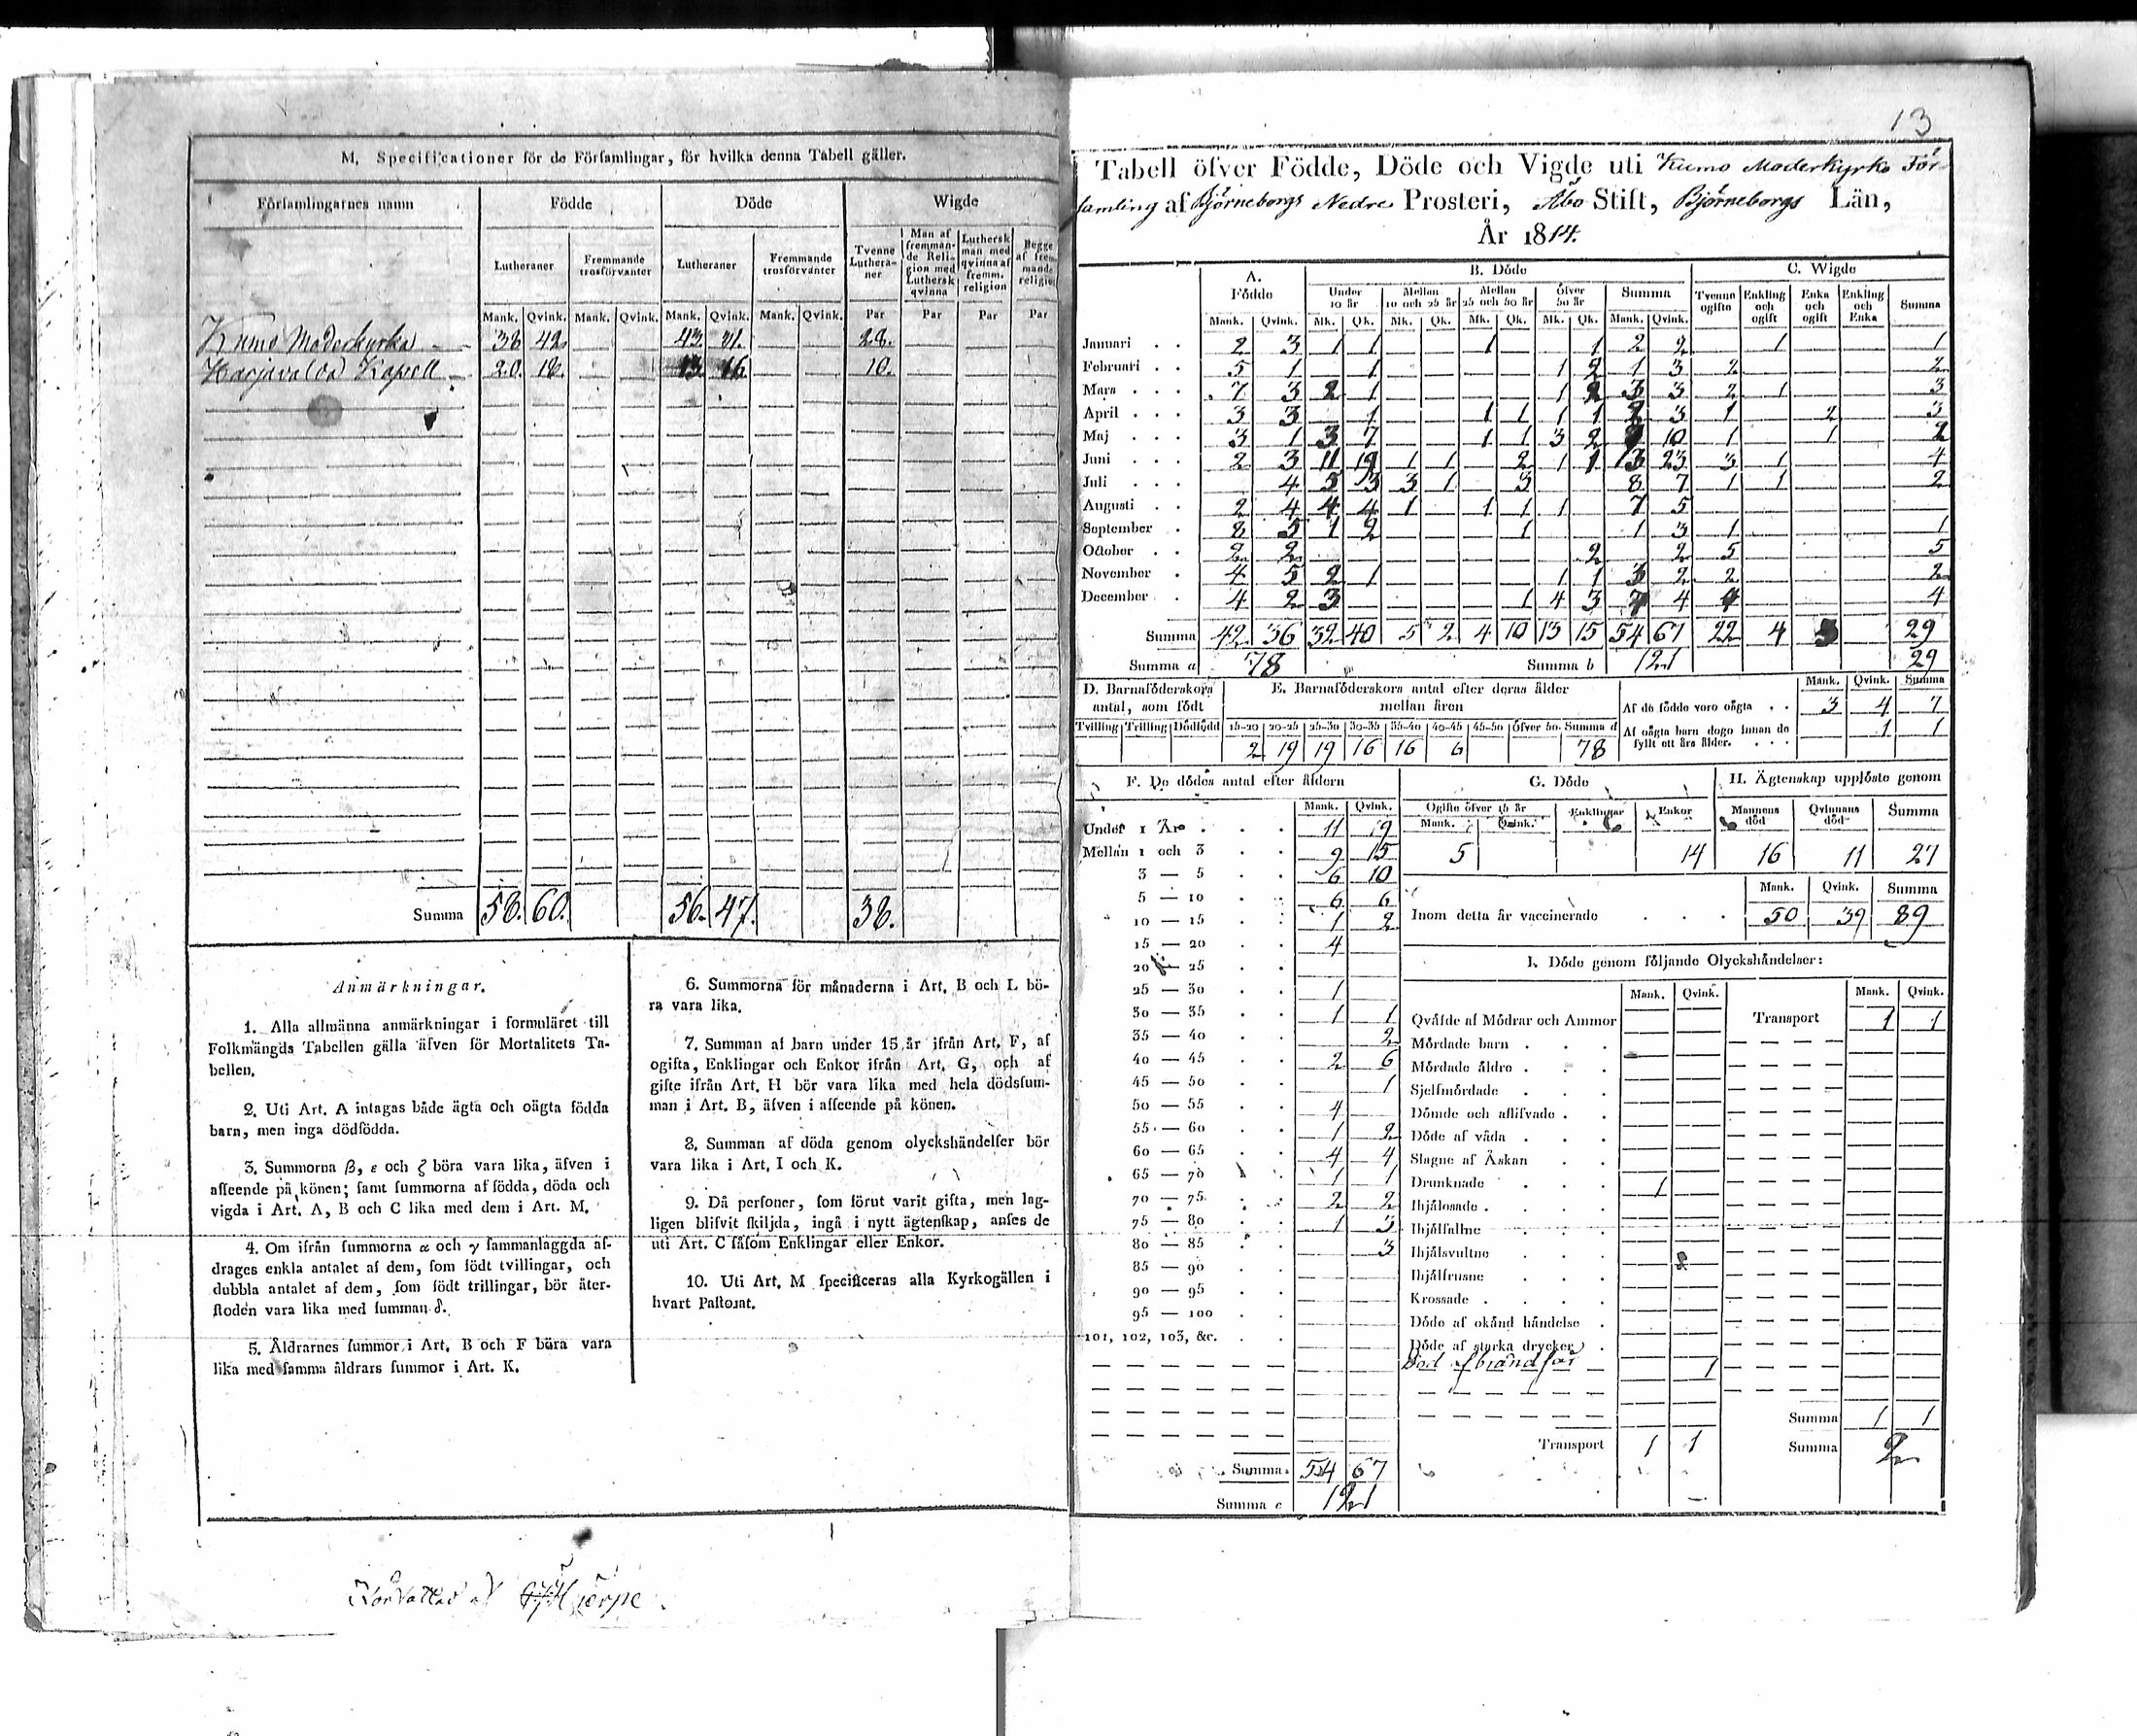 M. Specificationer för de Förſamlingar, för hvilka denna Tabell gäller.
Förſamlingarnes namn Födde Döde Wigde
Lutheraner Fremmande trosförvanter Lutheraner Fremmande trosförvanter Tvenne Lutheraner Man af fremmande Religion med Luthersk qvinna Luthersk man med qvinna af fremm. religion Begge af fremmande religion
Mank. Qvink. Mank. Qvink. Mank. Qvink. Mank. Qvink. Par Par Par Par
Kumo Moderkyrka 38 42 43 31. 28.
Harjavalda Kapell 20. 18. 13 16 10.
Summa 58. 60. 56. 47. 38.
Anmärkningar.
1. Alla allmänna anmärkningar i formuläret till
Folkmängds Tabellen gälla äfven för Mortalitets Ta-
bellen.
2. Uti Art. A intagas både ägta och oägta födda
barn, men inga dödfödda.
3. Summorna β, ε och ζ böra vara lika, äfven i
afſeende på könen; ſamt ſummorna af födda, döda och
vigda i Art. A, B och C lika med dem i Art. M.
4. Om ifrån ſummorna α och γ ſammanlaggda af-
drages enkla antalet af dem, ſom födt tvillingar, och
dubbla antalet af dem, ſom födt trillingar, bör åter-
ſtoden vara lika med ſumman δ.
5. Åldrarnes ſummor i Art. B och F böra vara
lika med ſamma åldrars ſummor i Art. K.
6. Summorna för månaderna i Art. B och L bö-
ra vara lika.
7. Summan af barn under 15 år ifrån Art. F, af
ogifta, Enklingar och Enkor ifrån Art. G, och af
gifte ifrån Art. H bör vara lika med hela dödsſum-
man i Art. B, äfven i afſeende på könen.
8. Summan af döda genom olyckshändelſer bör
vara lika i Art. I och K.
9. Då perſoner, ſom förut varit gifta, men lag-
ligen blifvit ſkiljda, ingå i nytt ägtenſkap, anſes de
uti Art. C ſåſom Enklingar eller Enkor.
10. Uti Art. M ſpecificeras alla Kyrkogällen i
hvart Paſtorat.
13
Tabell öfver Födde, Döde och Vigde uti Kumo Moderkyrko För-
samling af Björneborgs Nedre Prosteri, Åbo Stift, Björneborgs Län,
År 1814.
A. Födde B. Döde C. Wigde
Under 10 år Mellan 10 och 25 år Mellan 25 och 50 år Öfver 50 år Summa Tvenne ogifte Enkling och ogift Enka och ogift Enkling och Enka Summa
Mank. Qvink. Mk. Qk. Mk. Qk. Mk. Qk. Mk. Qk. Mank. Qvink.
Januari 2 3 1 1 1 1 2 2 1 1
Februari 5 1 1 1 2 1 3 2 2
Mars 7 3 2 1 1 2 3 3 2 1 3
April 3 3 1 1 1 1 1 2 3 1 2 3
Maj 3 1 3 7 1 1 3 2 10 1 1 2
Juni 2 3 11 19 1 1 2 1 1 13 23 3 1 4
Juli 4 5 3 3 1 3 8 7 1 1 2
Augusti 2 4 4 4 1 1 1 1 7 5
September 8 5 1 2 1 1 3 1 1
October 2 2 2 2 5 5
November 4 5 2 1 1 1 3 2 2 2
December 4 2 3 1 4 3 7 4 4 4
Summa 42 36 32 40 5 2 4 10 13 15 54 67 22 4 3 29
Summa a 78 Summa b 121 29
D. Barnaföderskors antal, som födt E. Barnaföderskors antal efter deras ålder mellan åren Mank. Qvink. Summa
Af de födde voro oägta 3 4 7
Tvilling Trilling Dödfödd 15-20 20-25 25-30 30-35 35-40 40-45 45-50 Öfver 50. Summa d
2 19 19 16 16 6 78
Af oägta barn dogo innan de fyllt ett års ålder. 1 1
F. De dödes antal efter åldern
Mank. Qvink.
Under 1 År 11 9
Mellan 1 och 3 9 15
3 — 5 6 10
5 — 10 6 6
10 — 15 1 2
15 — 20 4
20 — 25
25 — 30 1
30 — 35 1 1
35 — 40 2
40 — 45 2 6
45 — 50 1
50 — 55 4
55 — 60 1 2
60 — 65 4 4
65 — 70 1 1
70 — 75 2 2
75 — 80 1 3
80 — 85 3
85 — 90
90 — 95
95 — 100
101, 102, 103, &c.
Summa 54 67
Summa c 121
G. Döde
Ogifte öfver 15 år Enklingar Enkor
Mank. Qvink.
5 14
H. Ägtenskap upplöste genom
Mannens död Qvinnans död Summa
16 11 27
Mank. Qvink. Summa
Inom detta år vaccinerade 50 39 89
I. Döde genom följande Olyckshändelser:
Mank. Qvink. Mank. Qvink.
Qväfde af Mödrar och Ammor Transport 1 1
Mördade barn
Mördade äldre
Sjelfmördade
Dömde och aflifvade
Döde af våda
Slagne af Åskan
Drunknade 1
Ihjälosade
Ihjälfallne
Ihjälsvultne
Ihjälfrusne
Krossade
Döde af okänd händelse
Döde af starka drycker
1
Transport 1 1
Summa 1 1
Summa 2